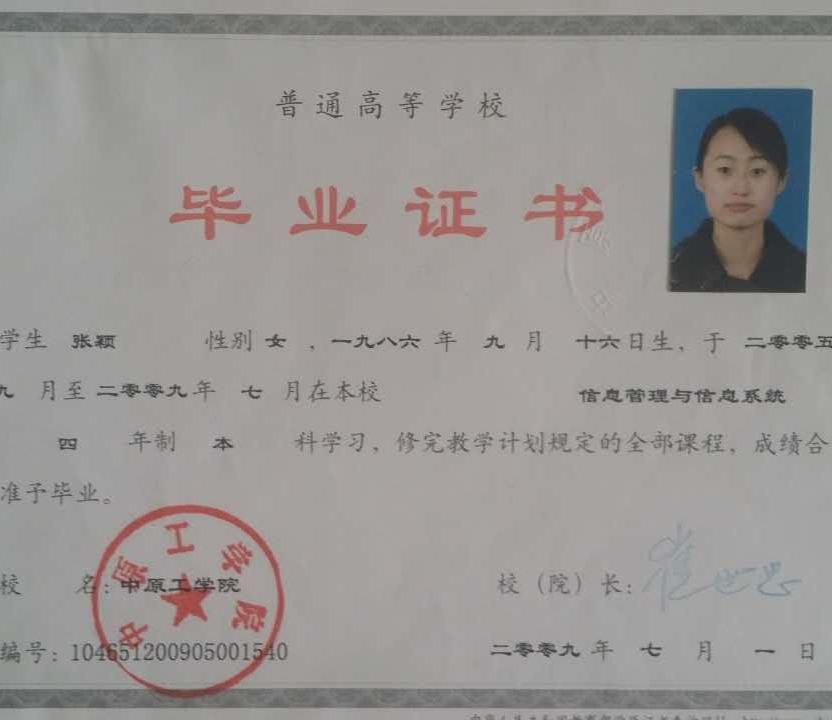 普通高等学校
毕业证书
学生 张颖 性别 女 ，一九八六 年 九 月 十六日生，于 二零零五
九 月至 二零零九年 七 月在本校 信息管理与信息系统
四 年制 本 科学习，修完教学计划规定的全部课程，成绩合
准予毕业。
校 名：中原工学院 校（院）长：崔世忠
中原工学院
编号：104651200905001540 二零零九 年 七 月 一 日